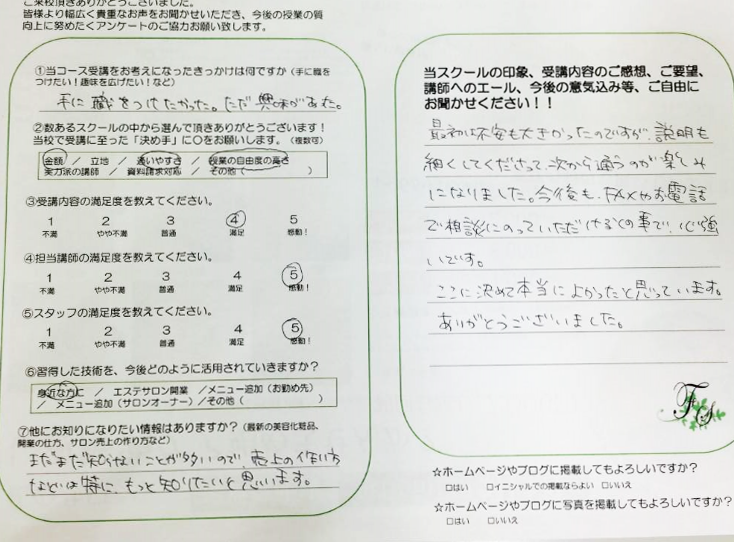 ご来校頂きありがとうございました。
皆様より幅広く貴重なお声をお聞かせいただき、今後の授業の質
向上に努めたくアンケートのご協力お願い致します。
①当コース受講をお考えになったきっかけは何ですか（手に職を
つけたい！趣味を広げたい！など）
手に職をつけたかった。ただ興味があった。
②数あるスクールの中から選んで頂きありがとうございます！
当校で受講に至った「決め手」に○をお願いします。（複数可）
金額 ／ 立地 ／ 通いやすさ ／ 授業の自由度の高さ
実力派の講師 ／ 資料請求対応 ／ その他（ ）
③受講内容の満足度を教えてください。
1 2 3 4 5
不満 やや不満 普通 満足 感動！
④担当講師の満足度を教えてください。
1 2 3 4 5
不満 やや不満 普通 満足 感動！
⑤スタッフの満足度を教えてください。
1 2 3 4 5
不満 やや不満 普通 満足 感動！
⑥習得した技術を、今後どのように活用されていきますか？
身近な方に ／ エステサロン開業 ／メニュー追加（お勤め先）
／ メニュー追加（サロンオーナー）／その他（ ）
⑦他にお知りになりたい情報はありますか？（最新の美容化粧品、
開業の仕方、サロン売上の作り方など）
まだまだ知らないことが多いので、売上の作り方
などは特に、もっと知りたいと思います。
当スクールの印象、受講内容のご感想、ご要望、
講師へのエール、今後の意気込み等、ご自由に
お聞かせください！！
最初は不安も大きかったのですが、説明も
細くしてくださって、次から通うのが楽しみ
になりました。今後も、FAXやお電話
で相談にのっていただけるとの事で、心強
いです。
ここに決めて本当によかったと思っています。
ありがとうございました。
FS
☆ホームページやブログに掲載してもよろしいですか？
□はい □イニシャルでの掲載ならよい □いいえ
☆ホームページやブログに写真を掲載してもよろしいですか？
□はい □いいえ